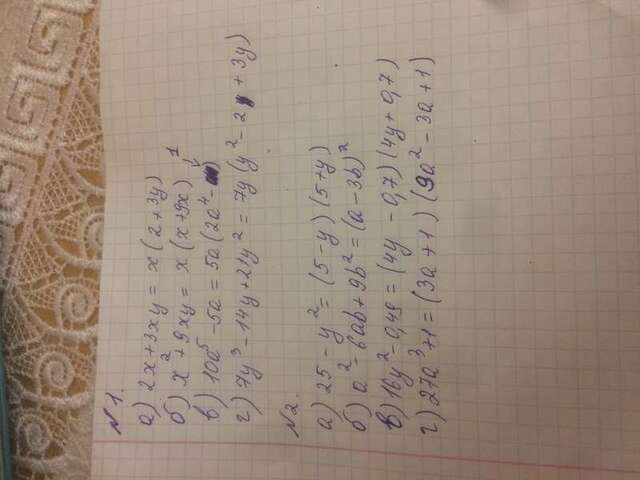 №1.
а) 2x+3xy = x(2+3y)
б) x²+9xy = x(x+9x)
1
в) 10a⁵-5a = 5a(2a⁴-)
г) 7y³-14y+21y² = 7y(y²-2+3y)
№2.
а) 25-y² = (5-y)(5+y)
б) a²-6ab+9b² = (a-3b)²
в) 16y²-0,49 = (4y-0,7)(4y+0,7)
г) 27a³+1 = (3a+1)(9a²-3a+1)